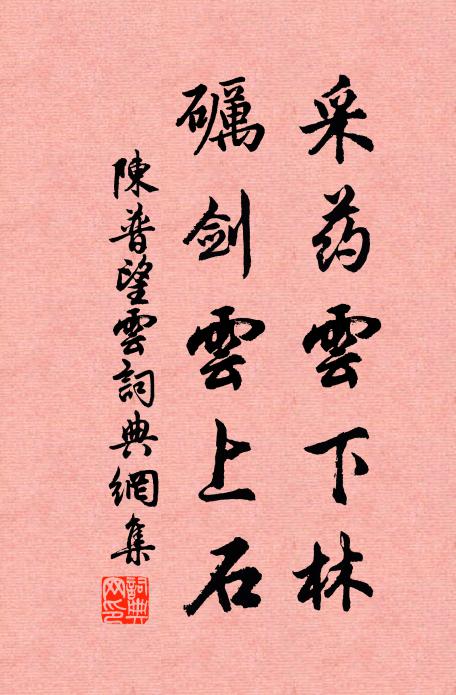 采药雲下林
礪剑雲上石
陳普望雲詞典網集
詞典
网印